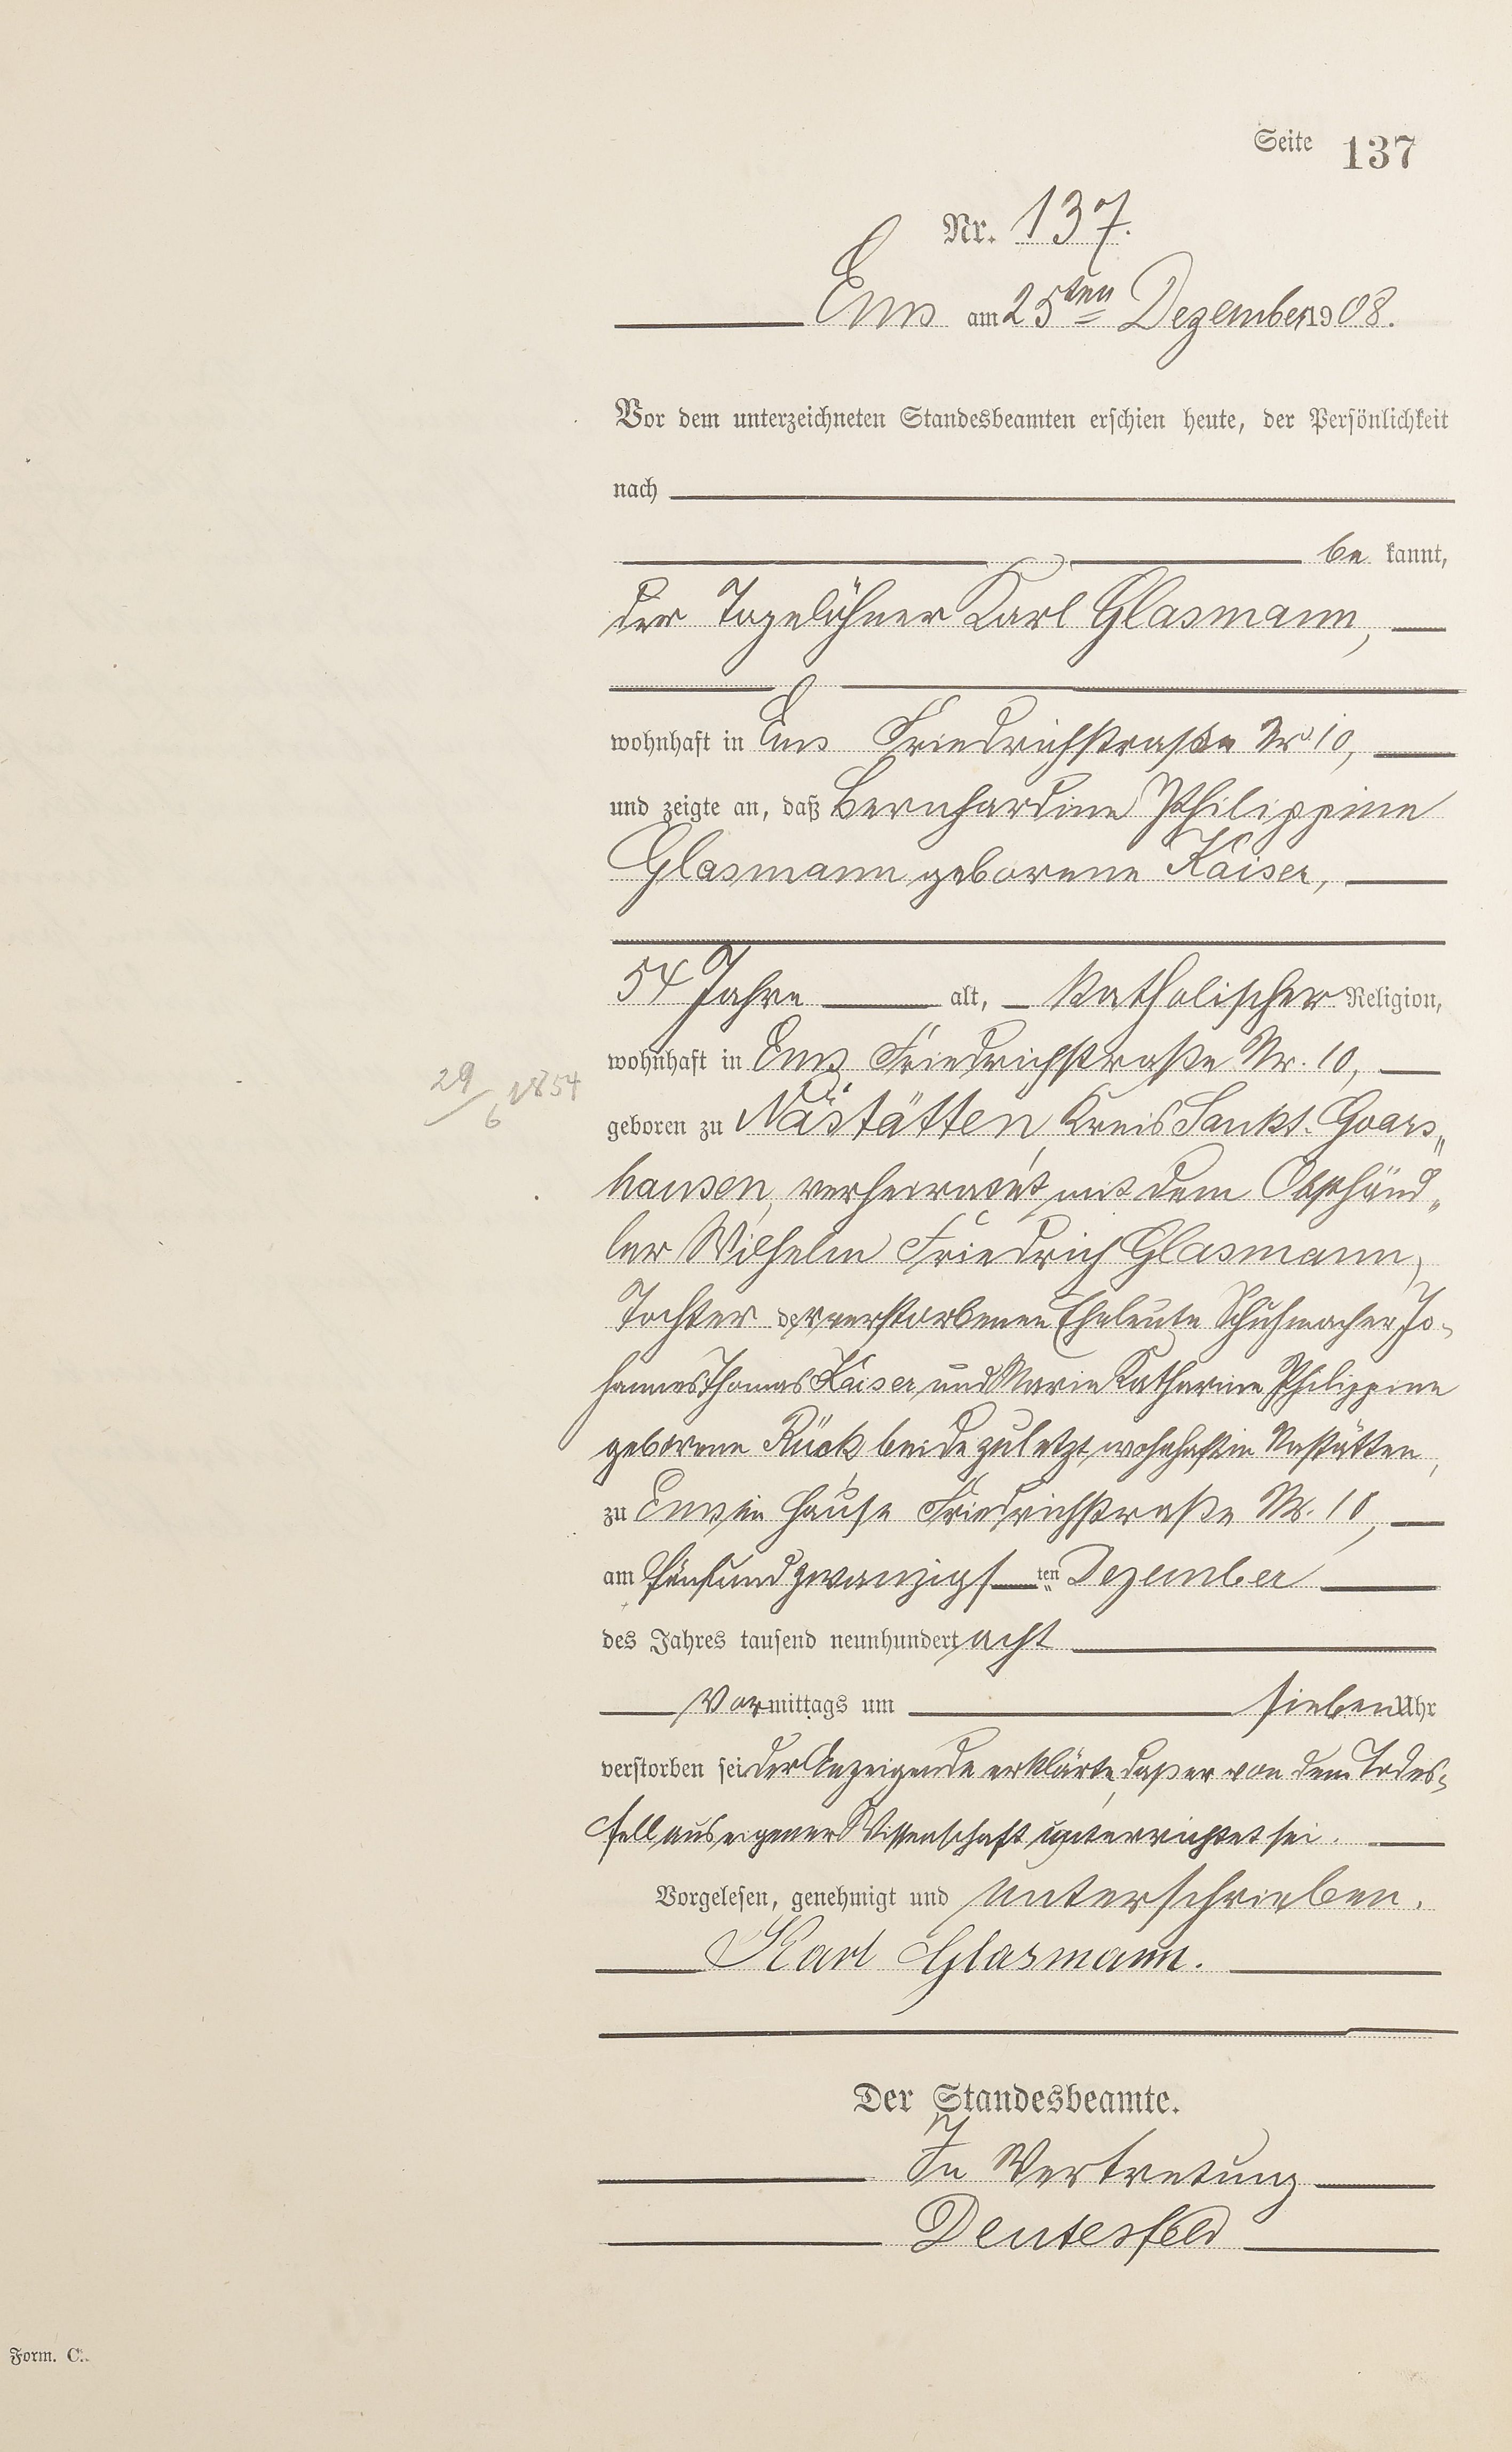 Seite 137
Nr. 137.
Ems am 25ten Dezember 1908.
Vor dem unterzeichneten Standesbeamten erschien heute, der Persönlichkeit
nach
be kannt,
der Tagelöhner Karl Glasmann,
wohnhaft in Ems Friedrichstraße Nr 10,
und zeigte an, daß Bernhardine Philippine
Glasmann geborene Kaiser,
54 Jahre alt, katholischer Religion,
wohnhaft in Ems Friedrichstraße Nr. 10,
29/6 1854
geboren zu Nastätten, Kreis Sankt. Goars„
hausen, verheiratet mit dem Obsthänd„
ler Wilhelm Friedrich Glasmann,
Tochter der verstorbenen Eheleute Schuhmacher Jo-
hannes Thomas Kaiser und Marie Katharine Philippine
geborene Rück beide zuletzt wohnhaft in Nastätten,
zu Ems im Hause Friedrichstraße Nr. 10,
am fünfundzwanzigsten Dezember
des Jahres tausend neunhundert acht
Vormittags um sieben Uhr
verstorben sei. Der Anzeigende erklärte, daß er von dem Todes-
fall aus eigener Wissenschaft unterrichtet sei.
Vorgelesen, genehmigt und unterschrieben.
Karl Glasmann.
Der Standesbeamte.
In Vertretung
Deutesfeld
Form. C.